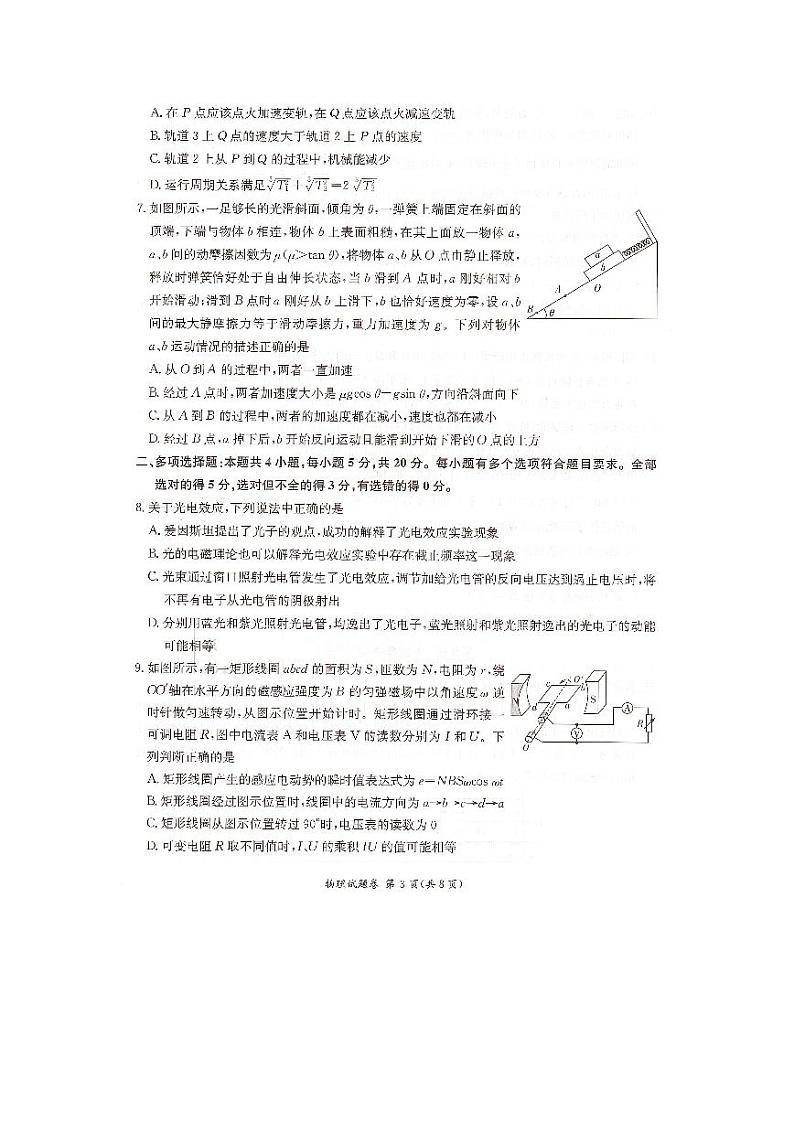 A. 在 P 点应该点火加速变轨,在 Q 点应该点火减速变轨
B. 轨道 3 上 Q 点的速度大于轨道 2 上 P 点的速度
C. 轨道 2 上从 P 到 Q 的过程中,机械能减少
D. 运行周期关系满足
7. 如图所示,一足够长的光滑斜面,倾角为 θ,一弹簧上端固定在斜面的
顶端,下端与物体 b 相连,物体 b 上表面粗糙,在其上面放一物体 a,
a、b 间的动摩擦因数为 μ(μ>tan θ),将物体 a、b 从 O 点由静止释放,
释放时弹簧恰好处于自由伸长状态,当 b 滑到 A 点时,a 刚好相对 b
开始滑动;滑到 B 点时 a 刚好从 b 上滑下,b 也恰好速度为零,设 a、b
间的最大静摩擦力等于滑动摩擦力,重力加速度为 g。下列对物体
a、b 运动情况的描述正确的是
A. 从 O 到 A 的过程中,两者一直加速
B. 经过 A 点时,两者加速度大小是 μgcos θ-gsin θ,方向沿斜面向下
C. 从 A 到 B 的过程中,两者的加速度都在减小,速度也都在减小
D. 经过 B 点,a 掉下后,b 开始反向运动且能滑到开始下滑的 O 点的上方
a
b
A
O
B
θ
二、多项选择题:本题共 4 小题,每小题 5 分,共 20 分。每小题有多个选项符合题目要求。全部
选对的得 5 分,选对但不全的得 3 分,有选错的得 0 分。
8. 关于光电效应,下列说法中正确的是
A. 爱因斯坦提出了光子的观点,成功的解释了光电效应实验现象
B. 光的电磁理论也可以解释光电效应实验中存在截止频率这一现象
C. 光束通过窗口照射光电管发生了光电效应,调节加给光电管的反向电压达到遏止电压时,将
不再有电子从光电管的阴极射出
D. 分别用蓝光和紫光照射光电管,均逸出了光电子,蓝光照射和紫光照射逸出的光电子的动能
可能相等
9. 如图所示,有一矩形线圈 abcd 的面积为 S,匝数为 N,电阻为 r,绕
OO′轴在水平方向的磁感应强度为 B 的匀强磁场中以角速度 ω 逆
时针做匀速转动,从图示位置开始计时。矩形线圈通过滑环接一
可调电阻 R,图中电流表 A 和电压表 V 的读数分别为 I 和 U。下
列判断正确的是
A. 矩形线圈产生的感应电动势的瞬时值表达式为 e=NBSωcos ωt
B. 矩形线圈经过图示位置时,线圈中的电流方向为 a→b→c→d→a
C. 矩形线圈从图示位置转过 90°时,电压表的读数为 0
D. 可变电阻 R 取不同值时,I、U 的乘积 IU 的值可能相等
N
c
O′
b
S
d
a
A
V
R
O
物理试题卷 第 3 页(共 8 页)